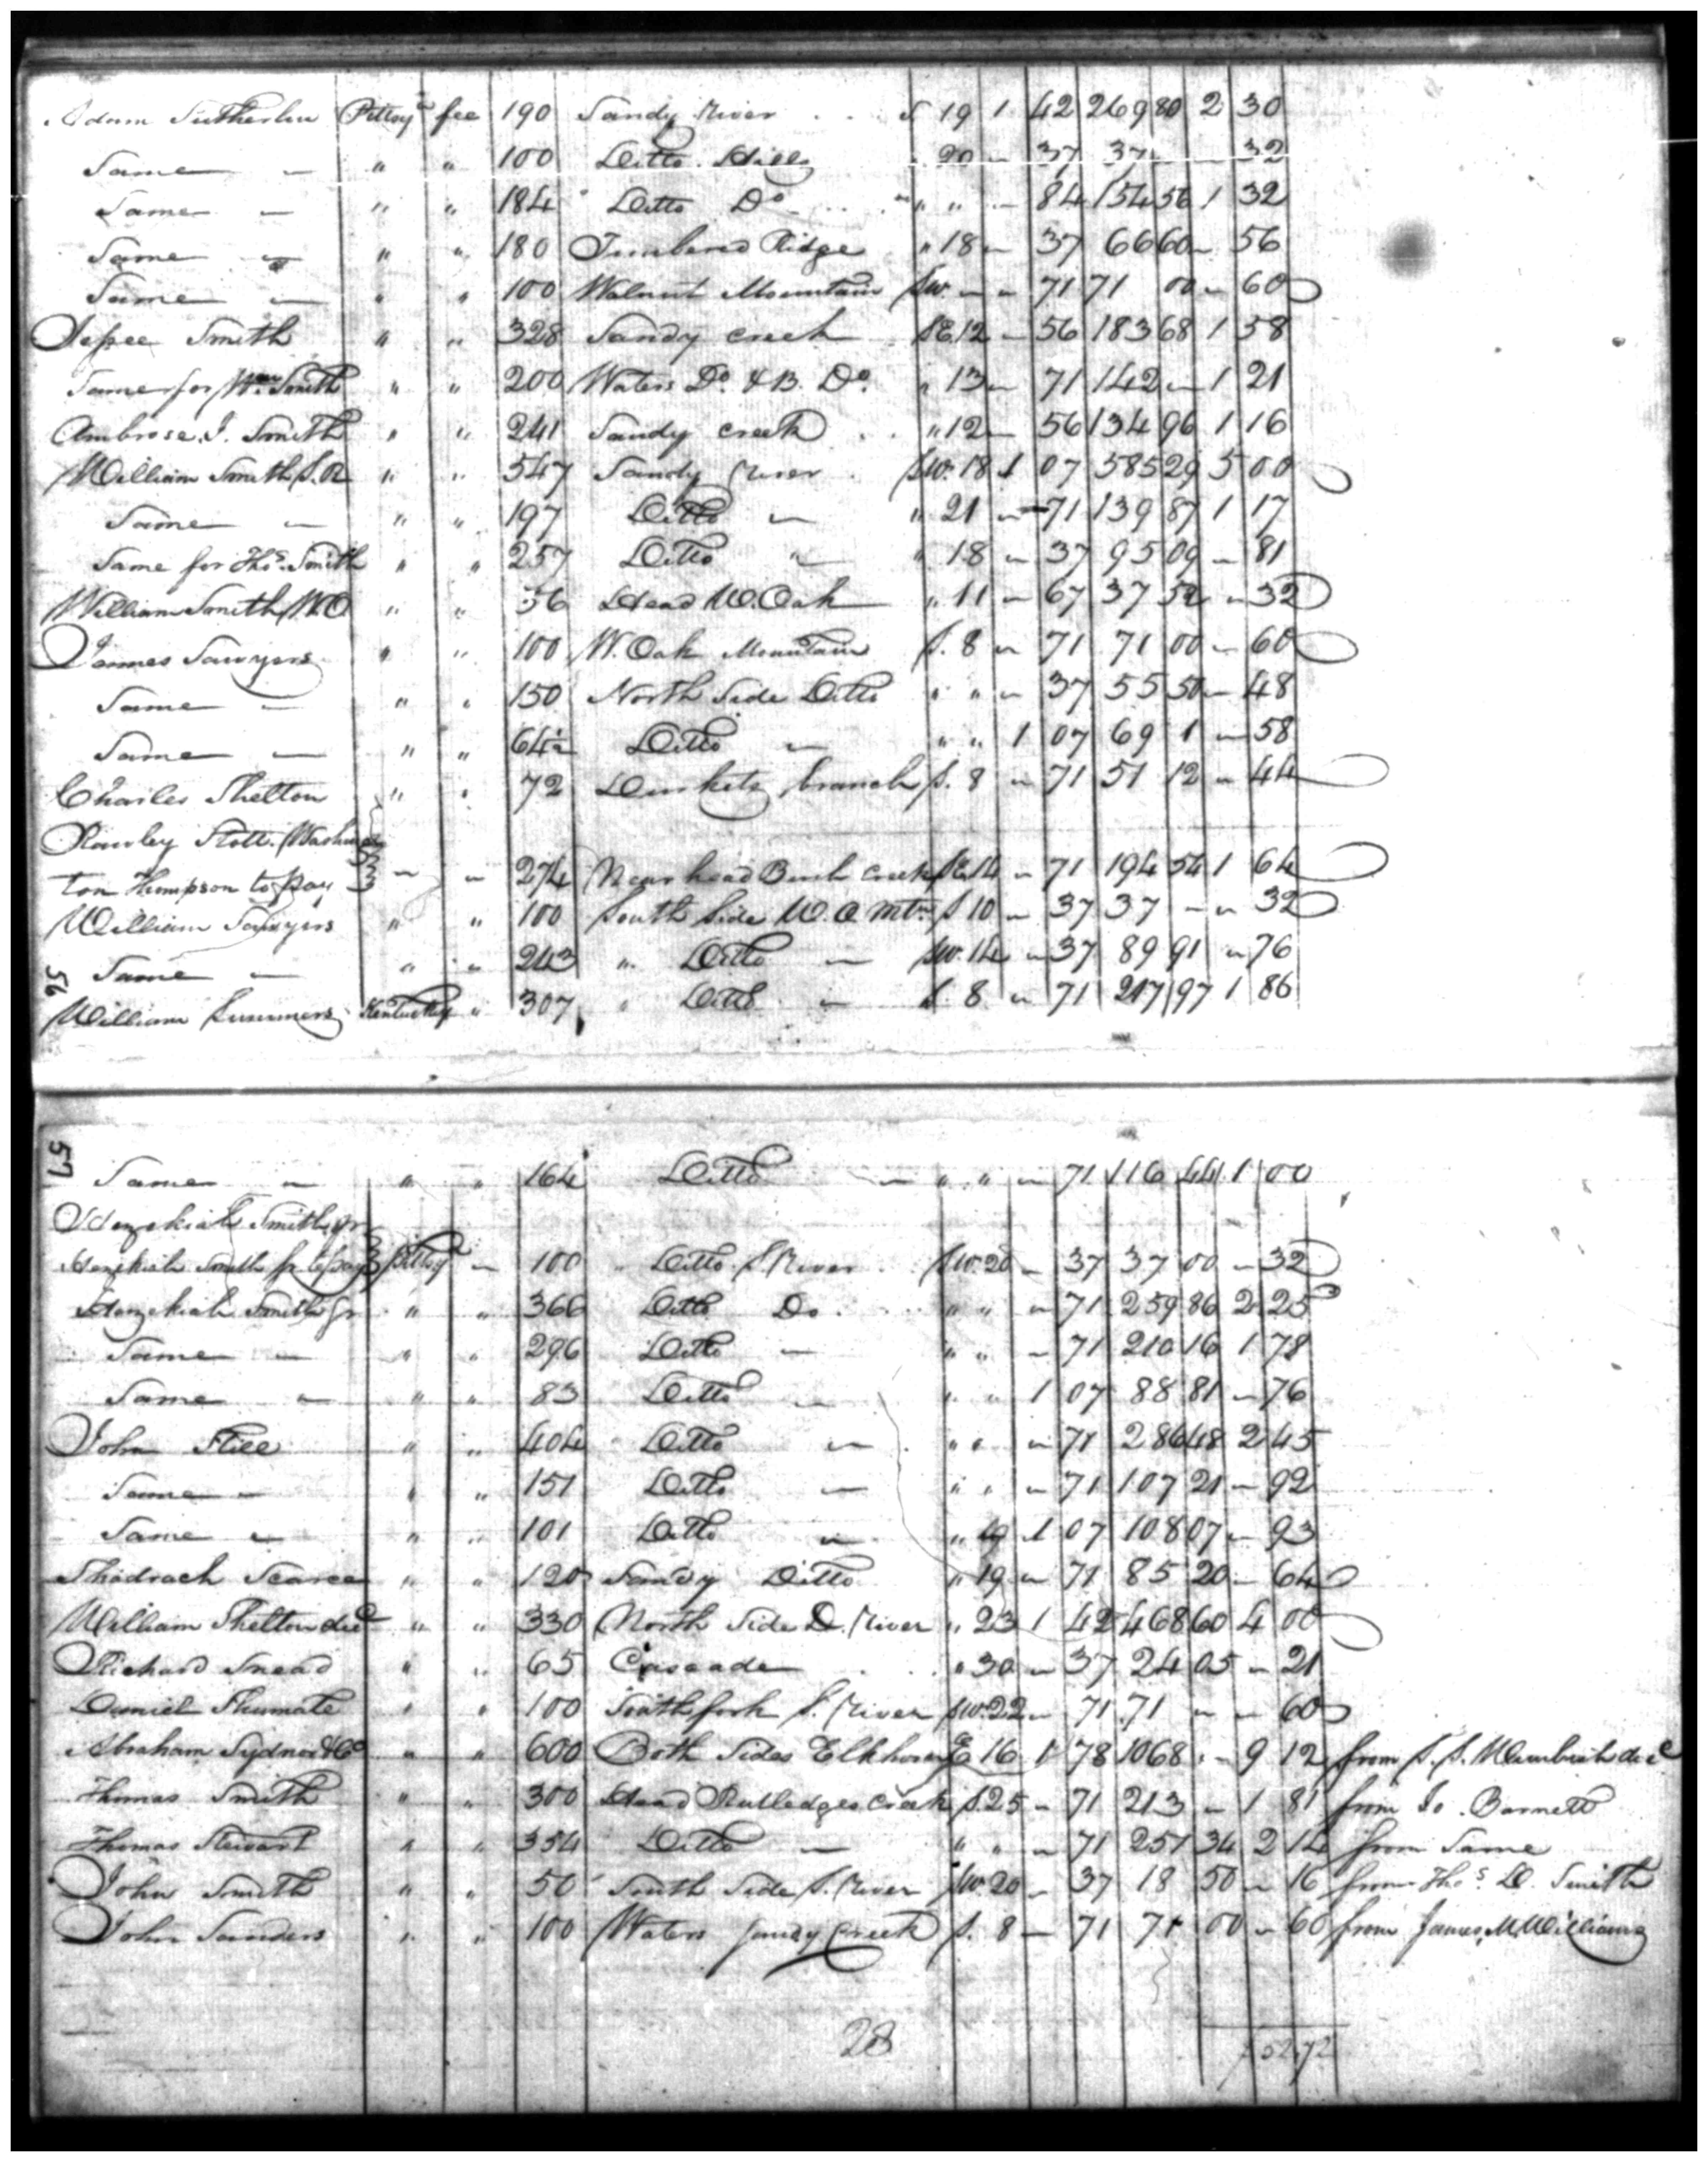 Adam Sutherlin Pittsyᵃ fee 190 Sandy River S 19 1 42 269 80 2 30
Same — " " 100 Ditto Hills " 20 — 37 37 — — 32
Same — " " 184 Ditto Dº " " — 84 154 56 1 32
Same — " " 180 Timbered Ridge " 18 — 37 66 60 — 56
Same — " " 100 Walnut Mountain SW. — — 71 71 00 — 60
Jessee Smith " " 328 Sandy creek SE. 12 — 56 183 68 1 58
Same for Wm Smith " " 200 Waters Dº & B. Dº " 13 — 71 142 — 1 21
Ambrose J. Smith " " 241 Sandy creek " 12 — 56 134 96 1 16
William Smith S.R " " 547 Sandy River SW. 18 1 07 585 29 5 00
Same — " " 197 Ditto — " 21 — 71 139 87 1 17
Same for Thoˢ. Smith " " 257 Ditto " " 18 — 37 95 09 — 81
William Smith W.O " " 56 Head W. Oak " 11 — 67 37 52 — 32
James Sawyers " " 100 W. Oak Mountain S. 8 — 71 71 00 — 60
Same — " " 150 North Side Ditto " " — 37 55 50 — 48
Same — " " 64½ Ditto — " " 1 07 69 1 — 58
Charles Shelton " " 72 Burkets branch S. 8 — 71 51 12 — 44
Rawley Stott. Washing
ton Thompson to pay — — 274 Near head Bush Creek SE. 14 — 71 194 54 1 64
William Sawyers " " 100 South Side W. O Mtn S 10 — 37 37 — — 32
Same — " " 243 " Ditto — SW. 14 — 37 89 91 — 76
56
William Summers Kentucky " 307 " Ditto — S. 8 — 71 217 97 1 86
57
Same — " " 164 Ditto — " " — 71 116 44 1 00
Hezekiah Smith jr
Hezekiah Smith Sr to pay Pittsyᵃ — 100 " Ditto S River SW. 20 — 37 37 00 — 32
Hezekiah Smith Jr " " 366 Ditto Do. " " — 71 259 86 2 25
Same — " " 296 Ditto — " " — 71 210 16 1 78
Same — " " 83 Ditto — " " 1 07 88 81 — 76
John Stiee " " 404 Ditto — " " — 71 286 48 2 45
Same — " " 151 Ditto — " " — 71 107 21 — 92
Same — " " 101 Ditto — " 19 1 07 108 07 — 93
Shadrach Scarce " " 120 Sandy Ditto " 19 — 71 85 20 — 64
William Shelton decᵈ " " 330 North Side D. River " 23 1 42 468 60 4 00
Richard Snead " " 65 Cascade " 30 — 37 24 05 — 21
Daniel Shumate " " 100 South fork S. River SW. 22 — 71 71 — — 60
Abraham Sydnor & Cº " " 600 Both Sides Elkhorn E 16 1 78 1068 — 9 12 from S. S. Wimbish decᵈ
Thomas Smith " " 300 Head Rutledges Creek S. 25 — 71 213 — 1 81 from Jo. Barnett
Thomas Stewart " " 354 Ditto — " " — 71 251 34 2 14 from Same
John Smith " " 50 South Side S. River SW. 20 — 37 18 50 — 16 from Thoˢ. D. Smith
John Sanders " " 100 Waters Sandy Creek S. 8 — 71 71 00 — 60 from James M Williams
28
$ 52.72